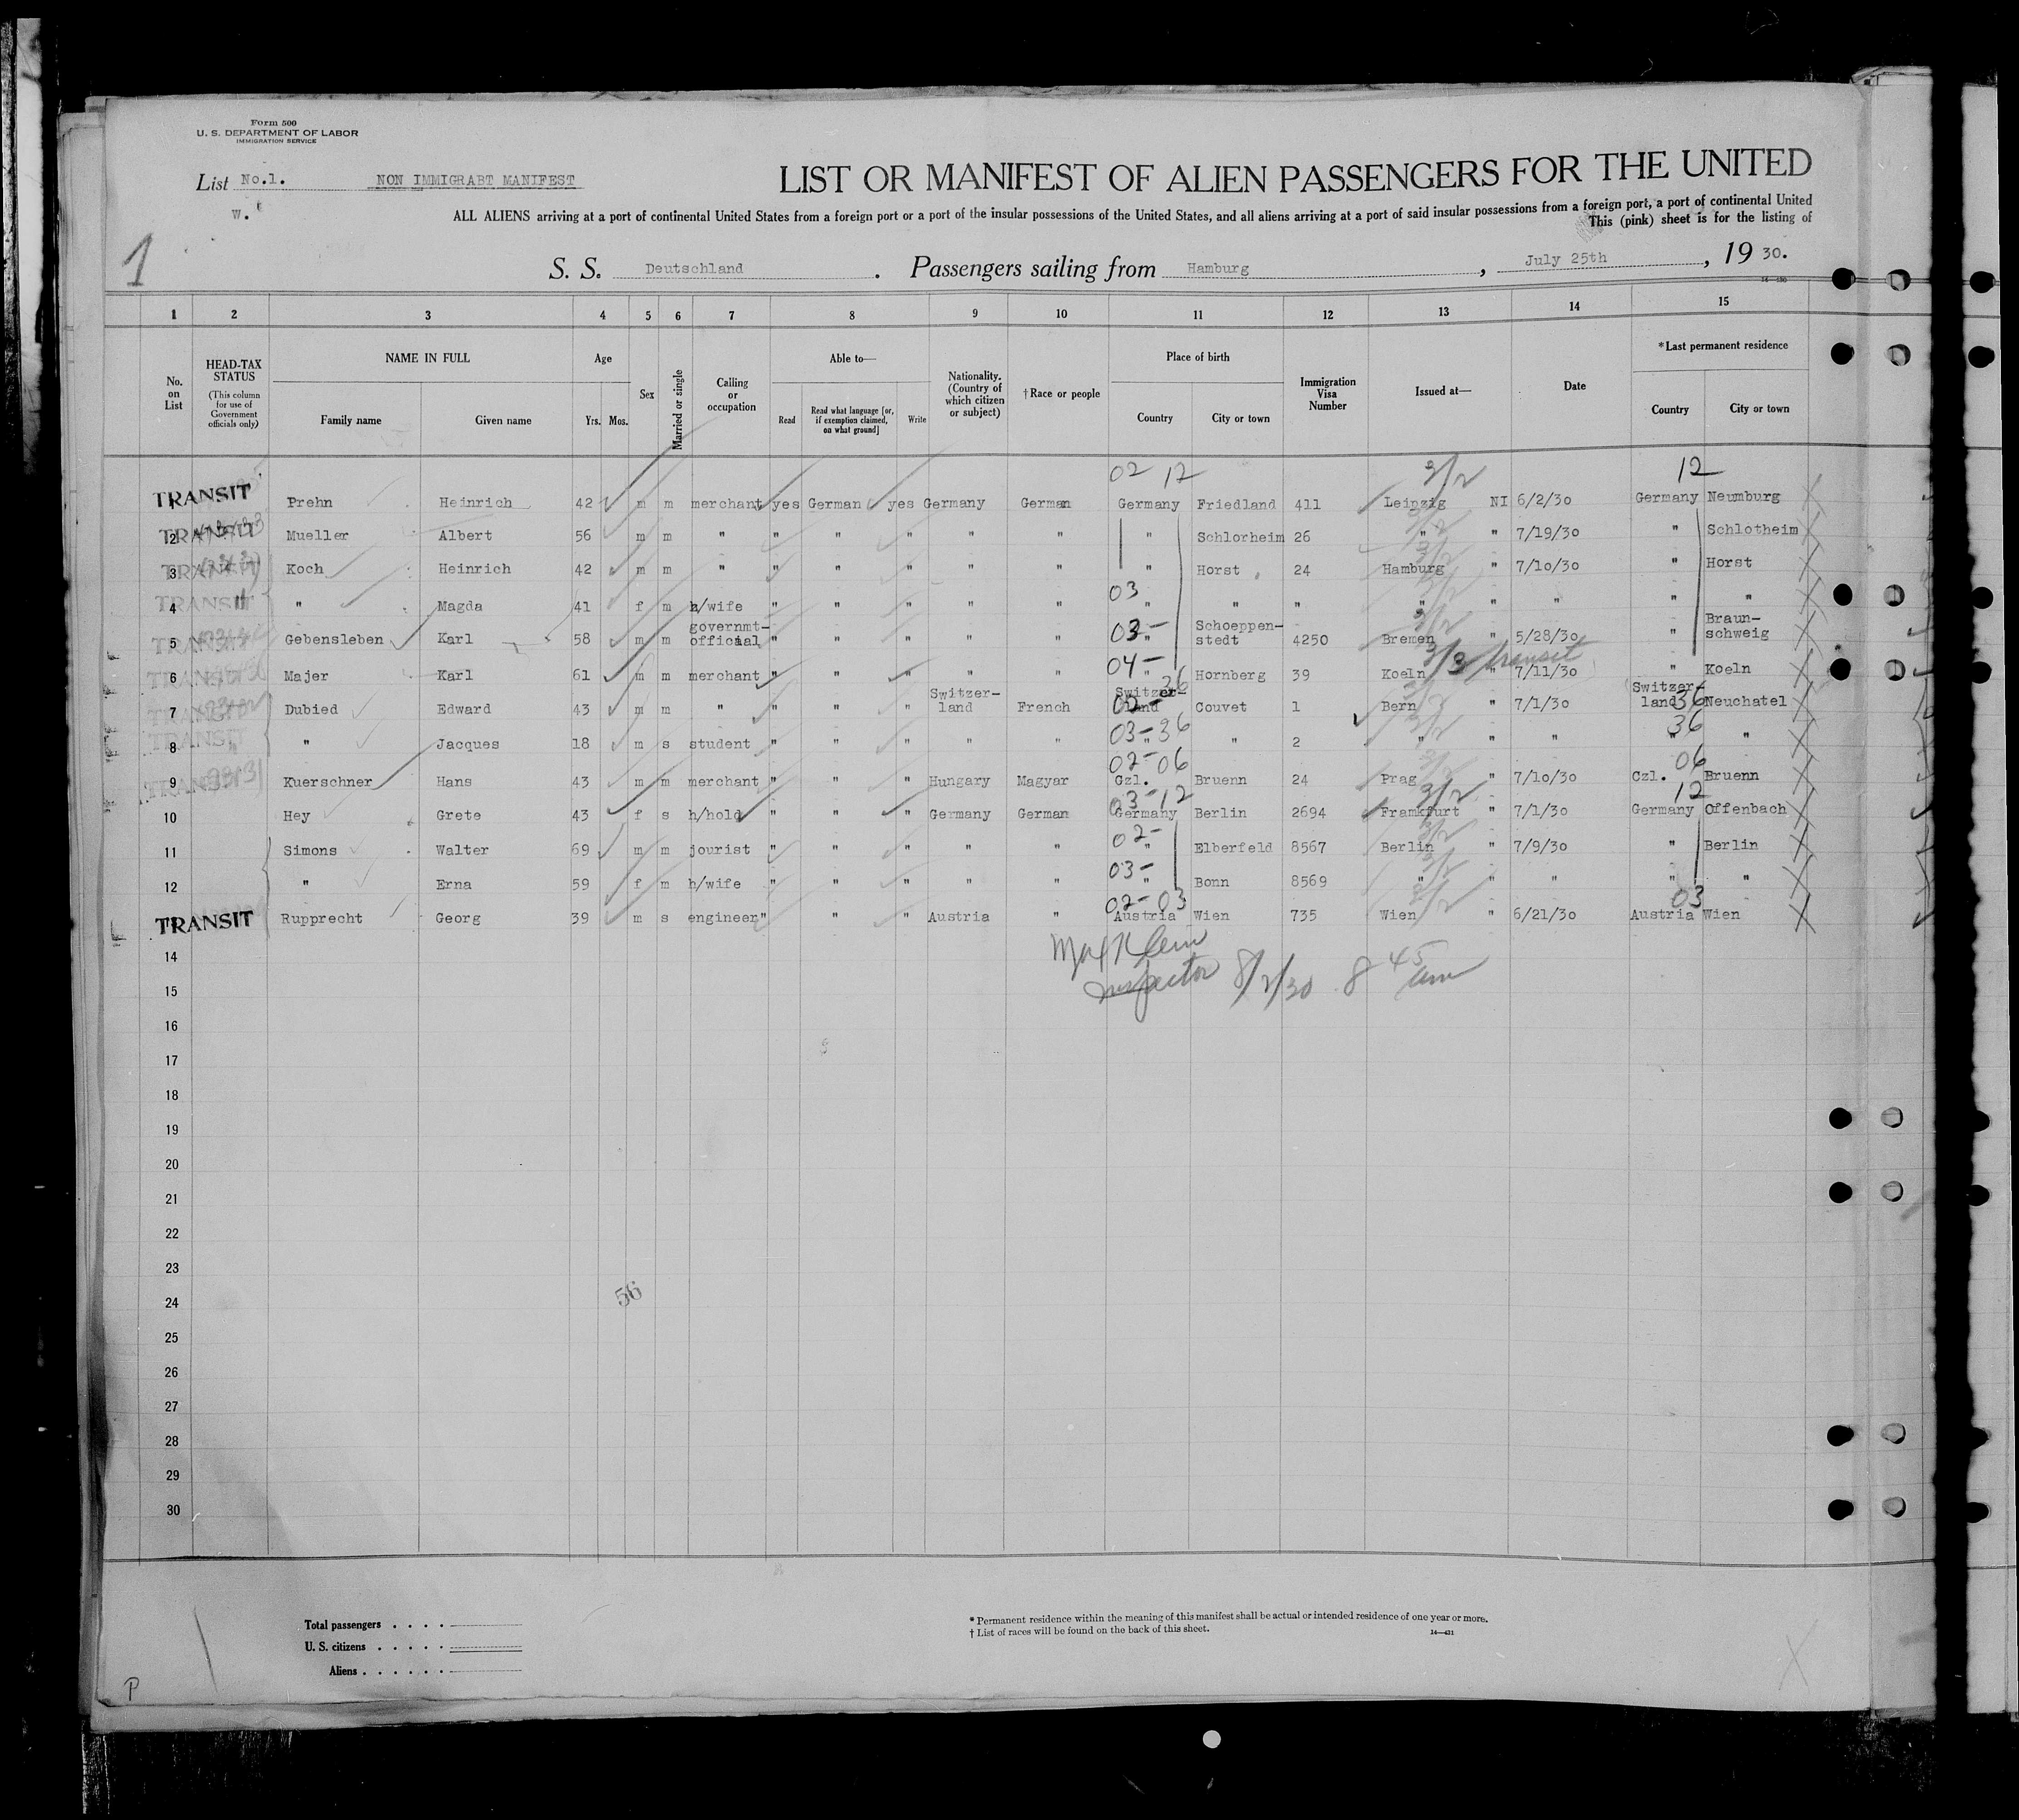 Form 500
U. S. DEPARTMENT OF LABOR
IMMIGRATION SERVICE
List No.1. NON IMMIGRABT MANIFEST
w.
LIST OR MANIFEST OF ALIEN PASSENGERS FOR THE UNITED
ALL ALIENS arriving at a port of continental United States from a foreign port or a port of the insular possessions of the United States, and all aliens arriving at a port of said insular possessions from a foreign port, a port of continental United
This (pink) sheet is for the listing of
1
S. S. Deutschland . Passengers sailing from Hamburg , July 25th , 19 30.
1 2 3 4 5 6 7 8 9 10 11 12 13 14 15
No. on List
HEAD-TAX STATUS
(This column for use of Government officials only)
NAME IN FULL
Family name Given name
Age
Yrs. Mos.
Sex
Married or single
Calling or occupation
Able to—
Read
Read what language [or, if exemption claimed, on what ground]
Write
Nationality. (Country of which citizen or subject)
† Race or people
Place of birth
Country City or town
Immigration Visa Number
Issued at—
Date
* Last permanent residence
Country City or town
02 12 3/2 12
TRANSIT Prehn Heinrich 42 m m merchant yes German yes Germany German Germany Friedland 411 Leipzig NI 6/2/30 Germany Neumburg
TRANSIT 2 Mueller Albert 56 m m " " " " " " " Schlorheim 26 " " 7/19/30 " Schlotheim
TRANSIT 3 Koch Heinrich 42 m m " " " " " " " Horst 24 Hamburg " 7/10/30 " Horst
03
TRANSIT 4 " Magda 41 f m h/wife " " " " " " " " " " " " "
TRANSIT 5 Gebensleben Karl 58 m m governmt-official " " " " " 03- " Schoeppen-stedt 4250 Bremen " 5/28/30 " Braun-schweig
04- 3/3 transit
TRANSIT 6 Majer Karl 61 m m merchant " " " " " " Hornberg 39 Koeln " 7/11/30 " Koeln
36
TRANSIT 7 Dubied Edward 43 m m " " " " Switzer-land French Switzer-land 02- Couvet 1 Bern " 7/1/30 Switzer-land 36 Neuchatel
03-36 36
TRANSIT 8 " Jacques 18 m s student " " " " " " " 2 " " " " "
02-06 06
TRANSIT 9 Kuerschner Hans 43 m m merchant " " " Hungary Magyar Czl. Bruenn 24 Prag " 7/10/30 Czl. Bruenn
03-12 3/2 12
10 Hey Grete 43 f s h/hold " " " Germany German Germany Berlin 2694 Framkfurt " 7/1/30 Germany Offenbach
02-
11 Simons Walter 69 m m jourist " " " " " " Elberfeld 8567 Berlin " 7/9/30 " Berlin
03-
12 " Erna 59 f m h/wife " " " " " " Bonn 8569 " " " " "
02-03 03
TRANSIT Rupprecht Georg 39 m s engineer " " " Austria " Austria Wien 735 Wien " 6/21/30 Austria Wien
14 Max Klein
15 Inspector 8/2/30 8 45 am
16
17
18
19
20
21
22
23
24
56
25
26
27
28
29
30
Total passengers
U. S. citizens
Aliens
* Permanent residence within the meaning of this manifest shall be actual or intended residence of one year or more.
† List of races will be found on the back of this sheet.
14—431
P